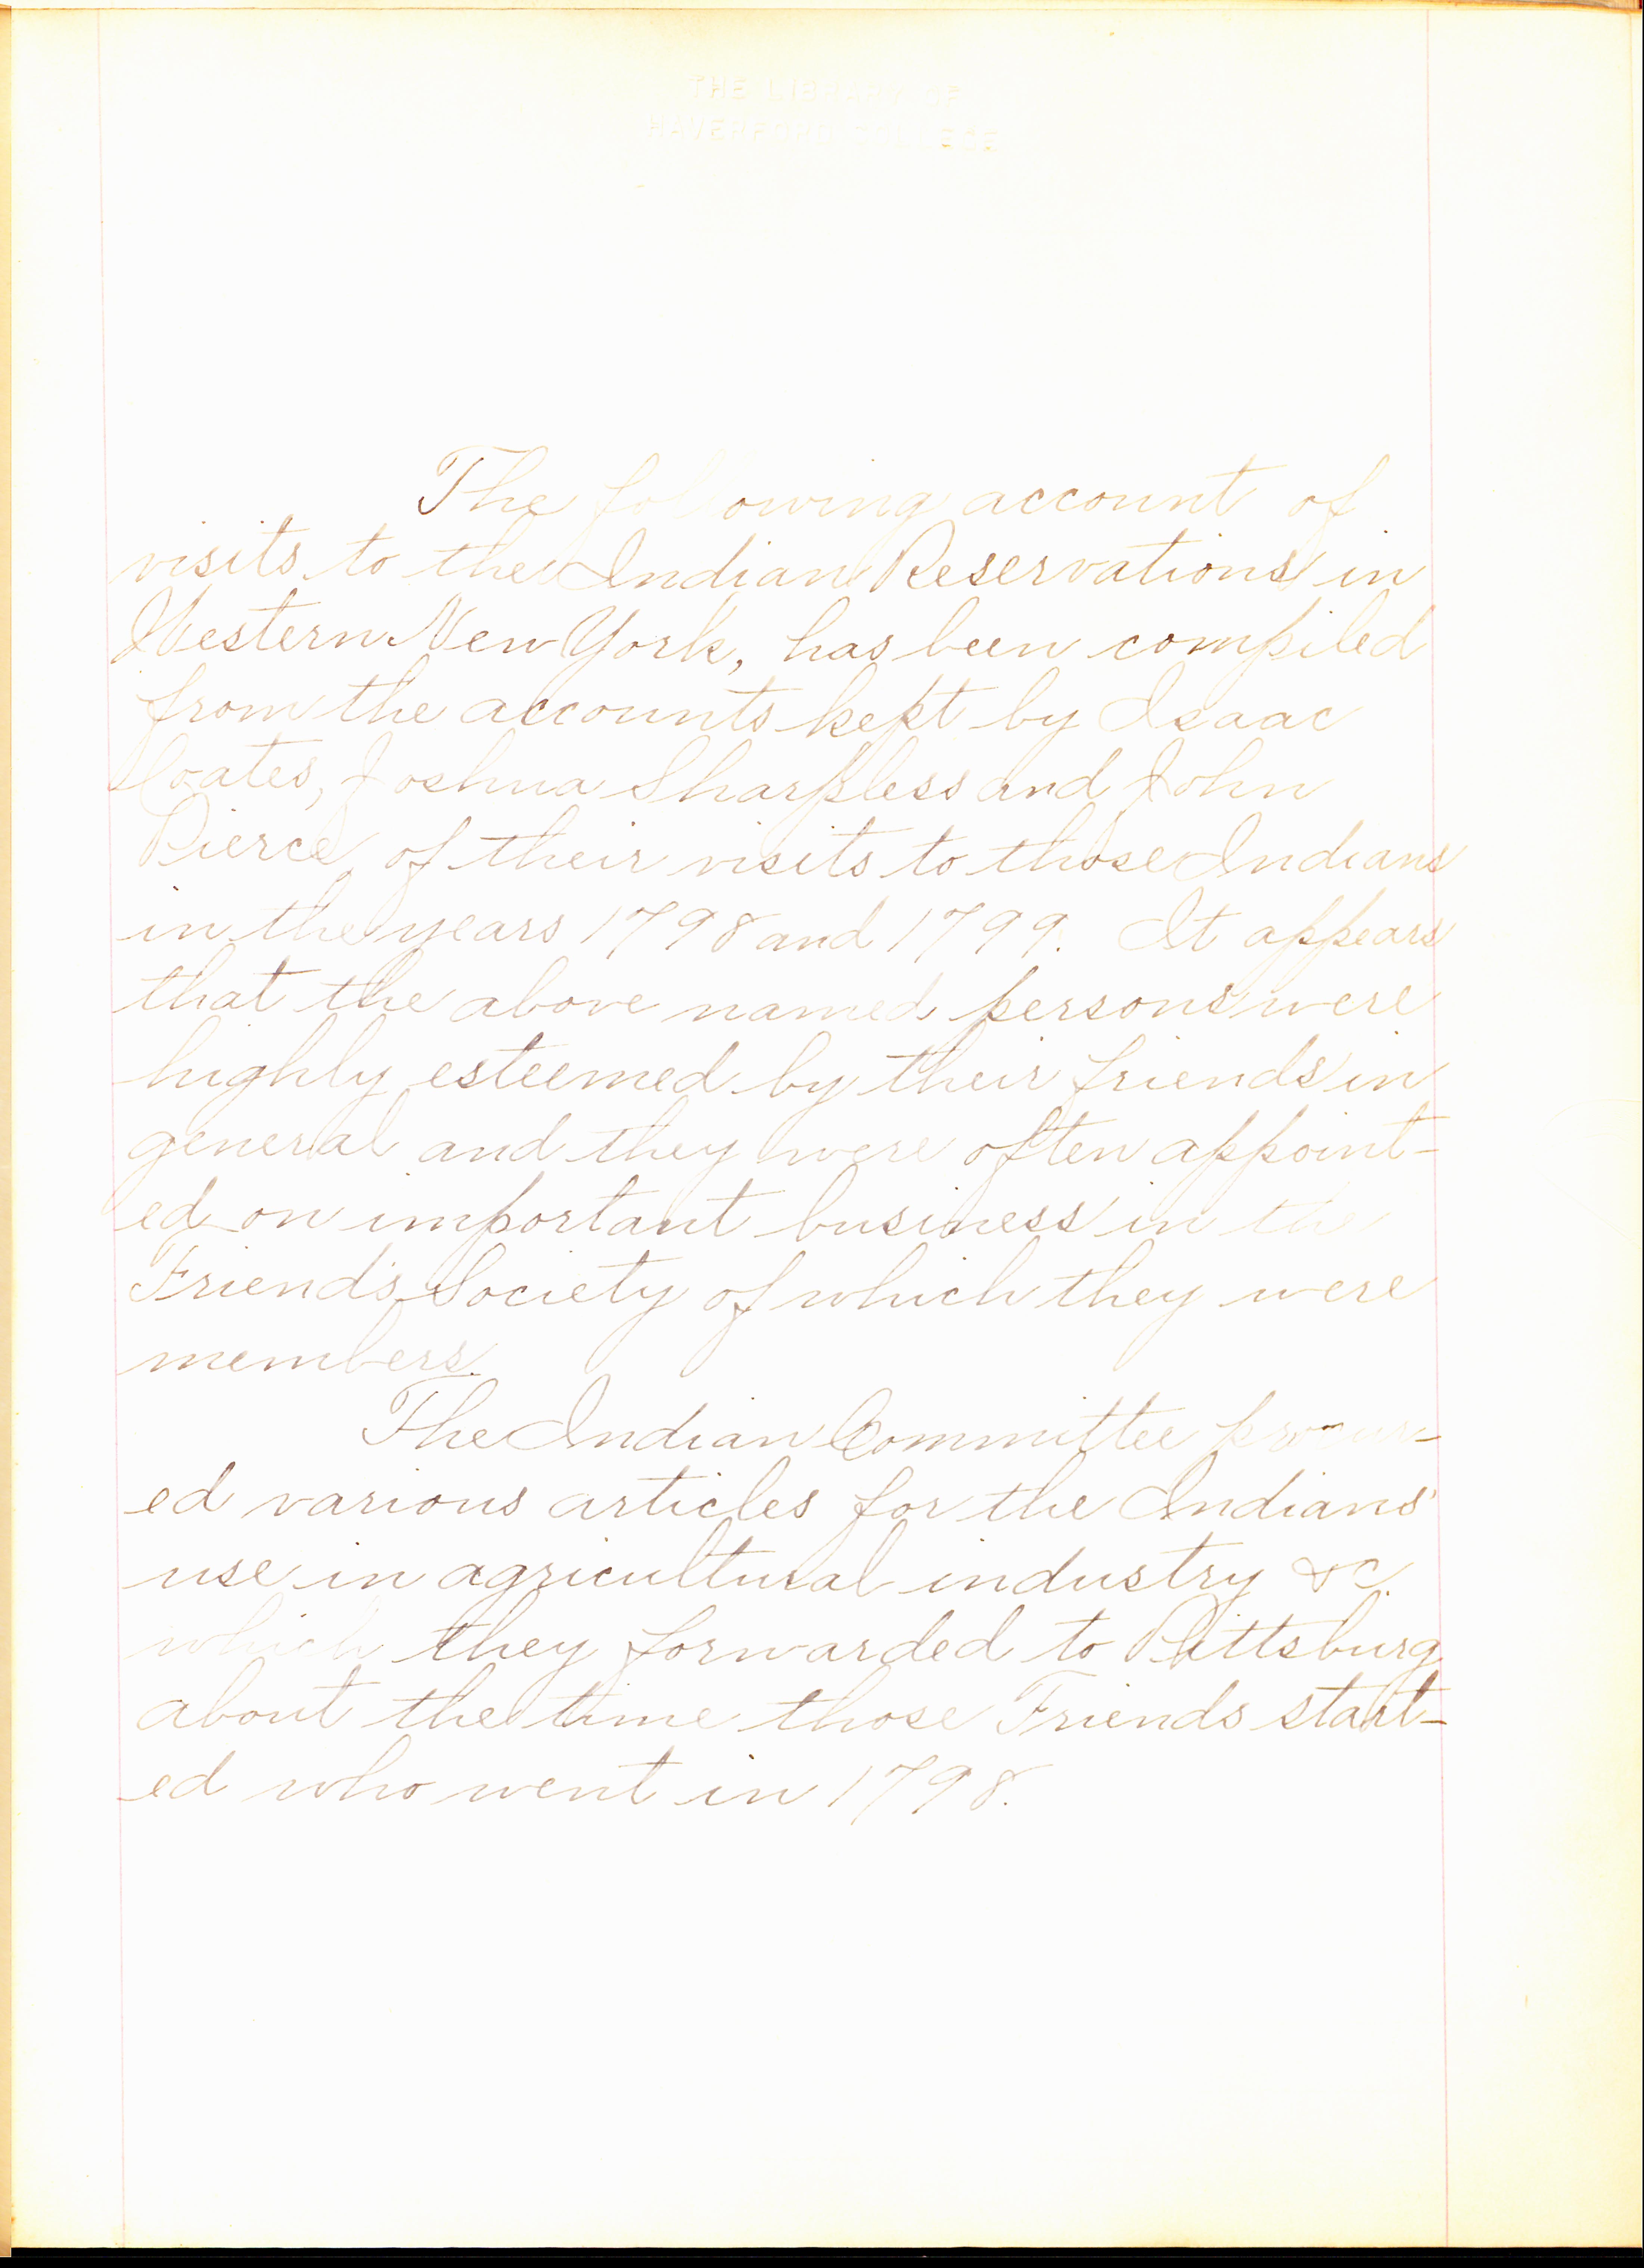 THE LIBRARY OF
HAVERFORD COLLEGE
The following account of
visits to the Indian Reservations in
Western New York, has been compiled
from the accounts kept by Isaac
Coates, Joshua Sharpless and John
Pierce, of their visits to those Indians
in the years 1798 and 1799. It appears
that the above named persons were
highly esteemed by their friends in
general and they were often appoint-
ed on important business in the
Friend's Society of which they were
members.
The Indian Committee procur-
ed various articles for the Indians'
use in agricultural industry &c.
which they forwarded to Pittsburg
about the time those Friends start-
ed who went in 1798.